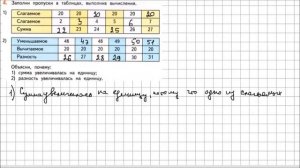 4. Заполни пропуски в таблицах, выполнив вычисления.
1) Слагаемое 20 20 20 20 20 20
Слагаемое 2 3 4 5 6 7
Сумма 22 23 25 26 27
2) Уменьшаемое 46 47 48 49 50 51
Вычитаемое 20 20 20 20 20 20
Разность 26 27 28 29
Объясни, почему:
1) сумма увеличивалась на единицу;
2) разность увеличивалась на единицу.
1) Сумма увеличилась на единицу, потому что одно из слагаемых